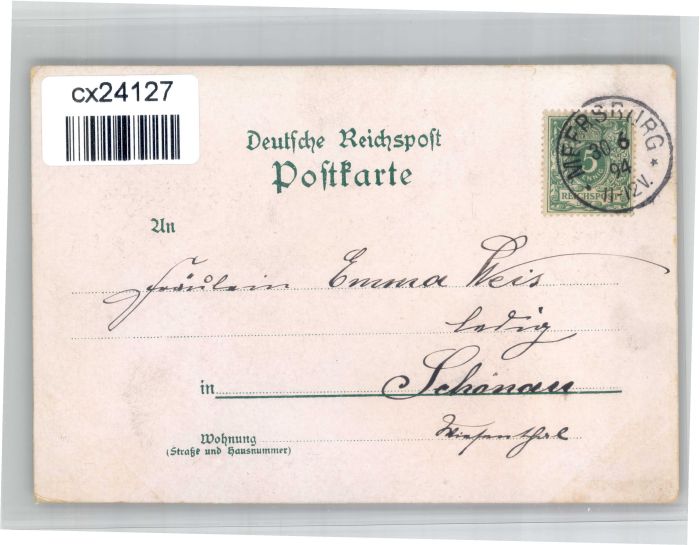 cx24127
MEERSBURG
30 6
94
11-12V.
5
PFENNIG
REICHSPOST
Deutsche Reichspost
Postkarte
An
Fräulein Emma Weis
ledig
in Schönau
Wiesenthal
Wohnung
(Straße und Hausnummer)